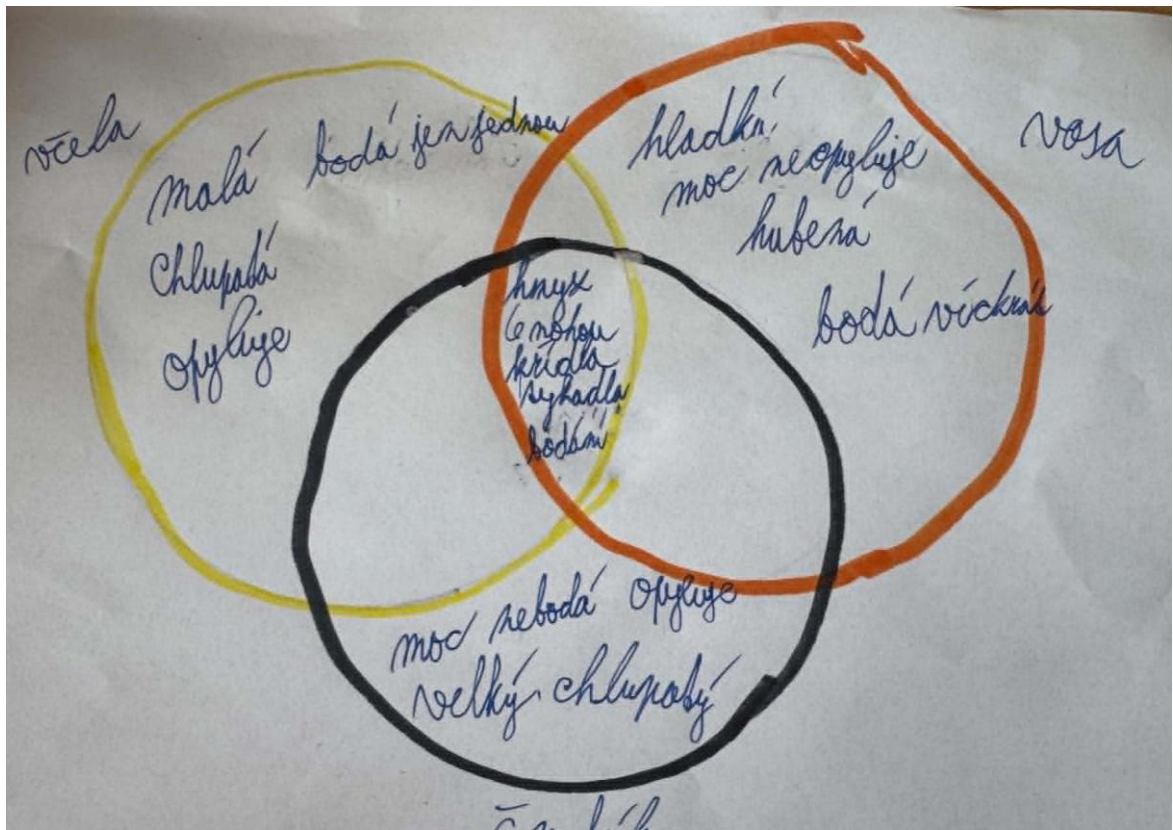 včela
malá
chlupatá
opyluje
bodá jen jednou
hladká
moc neopyluje
hubená
bodá víckrát
vosa
hmyz
6 nohou
křídla
tykadla
bodání
moc nebodá opyluje
velký chlupatý